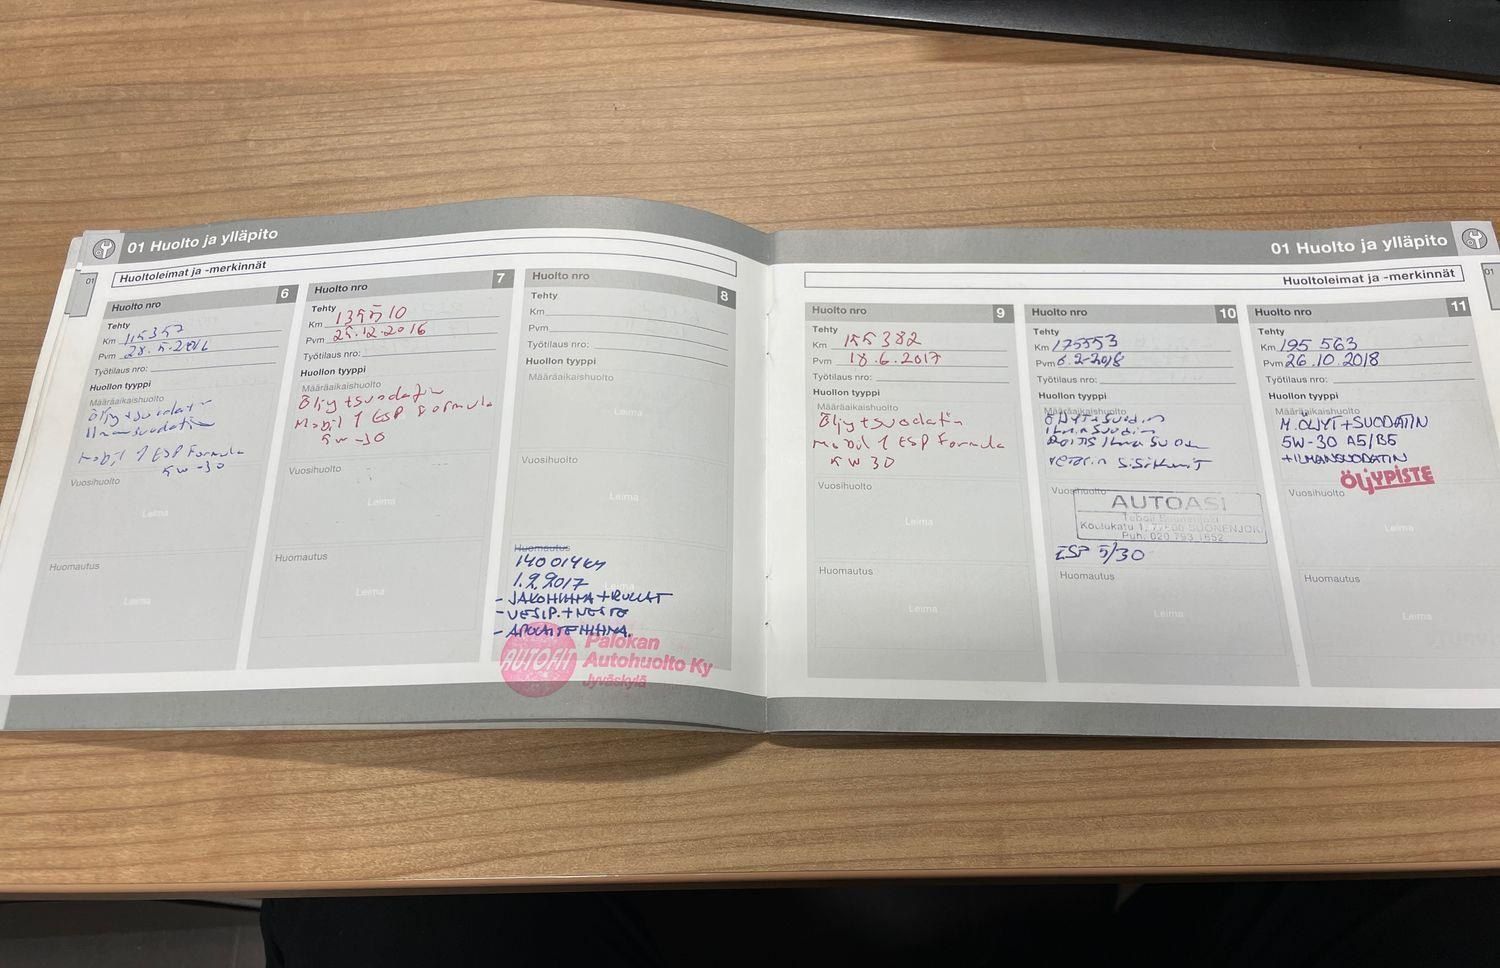 01 Huolto ja ylläpito
01
Huoltoleimat ja -merkinnät
Huolto nro 6
Tehty
Km 115357
Pvm 28.5.2016
Työtilaus nro:
Huollon tyyppi
Määräaikaishuolto
Öljyt+suodatin
Ilmansuodatin
Mobil 1 ESP Formula
5W-30
Vuosihuolto
Leima
Huomautus
Leima
Huolto nro 7
Tehty
Km 135510
Pvm 25.12.2016
Työtilaus nro:
Huollon tyyppi
Määräaikaishuolto
Öljyt+suodatin
Mobil 1 ESP Formula
5W-30
Vuosihuolto
Leima
Huomautus
Leima
Huolto nro 8
Tehty
Km
Pvm
Työtilaus nro:
Huollon tyyppi
Määräaikaishuolto
Leima
Vuosihuolto
Leima
Huomautus
140014 KM
Leima
1.2.2017
- JAKOHIHNA + RULLAT
- VESIP. + NESTE
- APULAITEHIHNA.
AUTOFIT
Palokan
Autohuolto Ky
Jyväskylä
01 Huolto ja ylläpito
01
Huoltoleimat ja -merkinnät
Huolto nro 9
Tehty
Km 155382
Pvm 18.6.2017
Työtilaus nro:
Huollon tyyppi
Määräaikaishuolto
Öljyt+suodatin
Mobil 1 ESP Formula
5W30
Vuosihuolto
Leima
Huomautus
Leima
Huolto nro 10
Tehty
Km 175553
Pvm 6.2-2018
Työtilaus nro:
Huollon tyyppi
Määräaikaishuolto
ÖLJYT+SUODIN
ILMAN SUODIN
RAITIS ILMA SUODIN
Vuosihuolto
AUTOASI
Koulukatu 1, 77600 SUONENJOKI
Puh. 020 793 1652
ESP 5/30
Huomautus
Leima
Huolto nro 11
Tehty
Km 195 563
Pvm 26.10.2018
Työtilaus nro:
Huollon tyyppi
Määräaikaishuolto
M.ÖLJYT+SUODATIN
5W-30 A5/B5
+ILMANSUODATIN
ÖLJYPISTE
Vuosihuolto
Leima
Huomautus
Leima